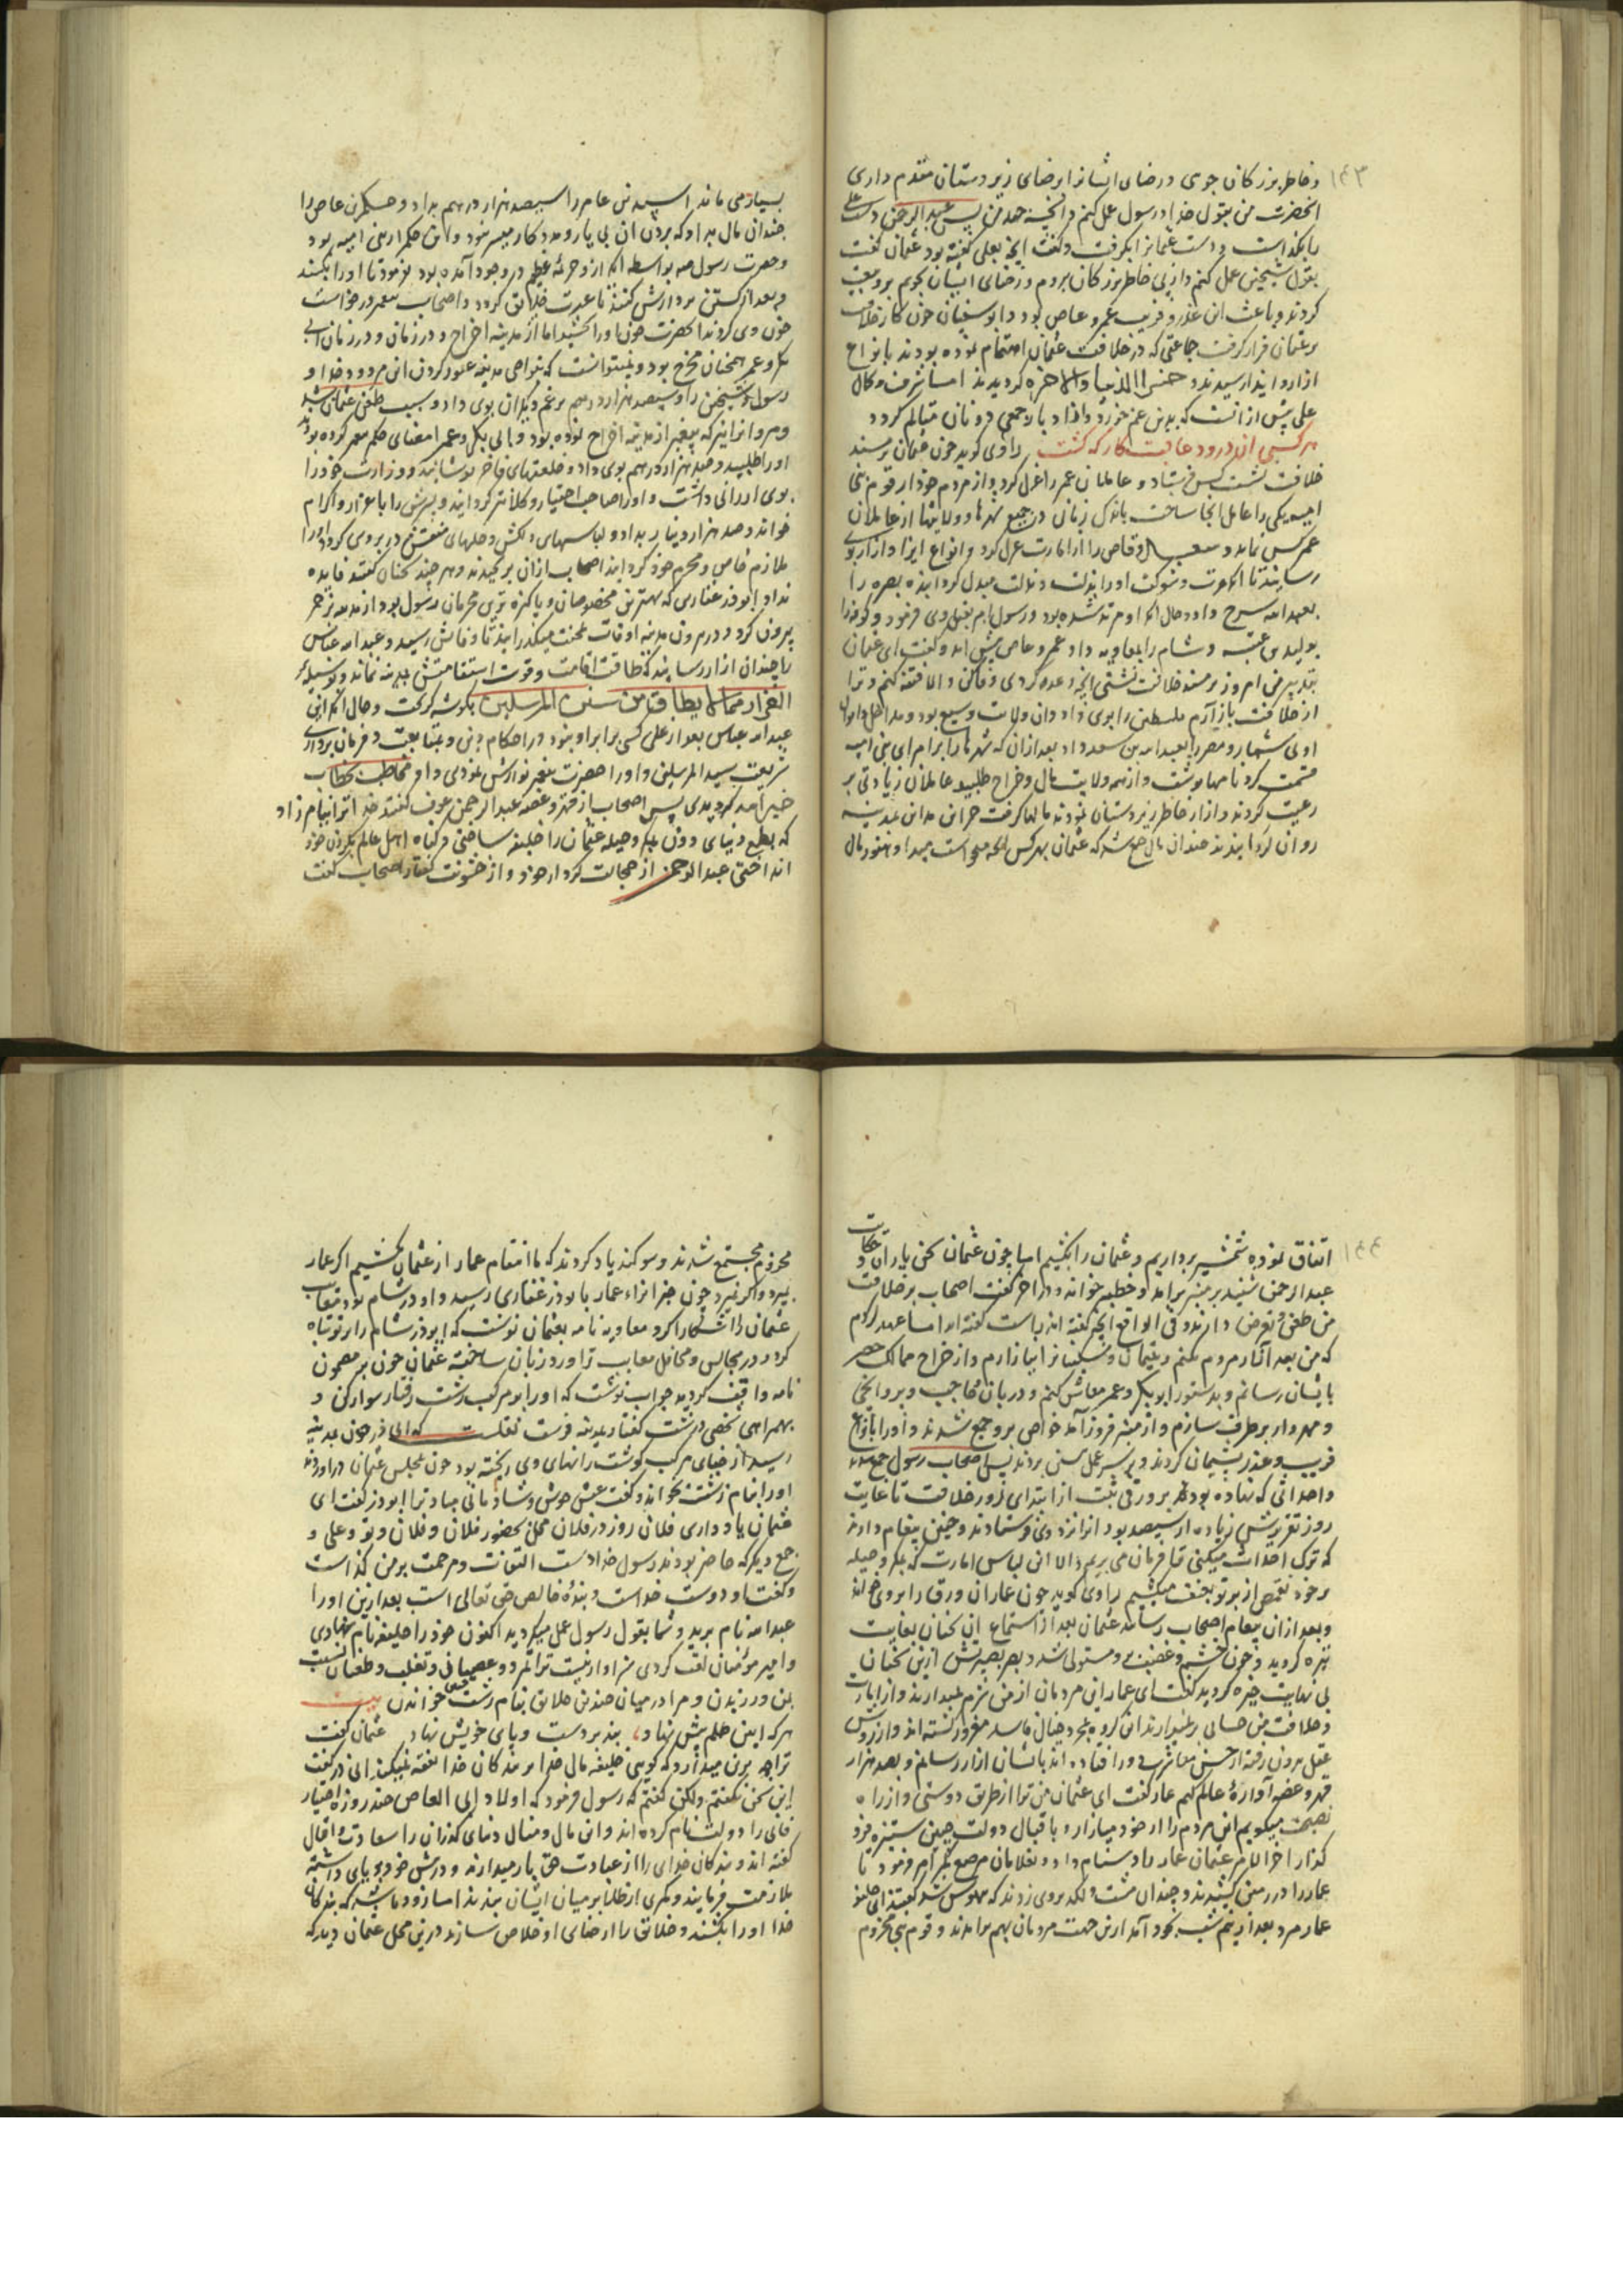 ۱۴۳
و خاطر بزرگان جوی و رضای ایشانرا بر رضای زیردستان مقدم داری
انحضرت من بقول خدا و رسول عمل کنم و پس عبدالرحمن دست علی
را بگذاشت و دست عثمانرا بگرفت و گفت آنچه بعلی گفته بود عثمان گفت
بقول شیخین عمل کنم و از پی خاطر بزرگان بروم و رضای ایشان بجویم برو بیعت
کردند و باعث این غدر و فریب عمرو عاص بود و ابوسفیان چون کار خلافت
بر عثمان قرار گرفت جماعتی که در خلافت عثمان اهتمام نموده بودند بانواع
ازار و ایذا رسیدند و خسر الدنیا والاخره گردیدند اما شرف و کمال
علی پیش از آنست که
هر کسی آن درود عاقبت کار که کشت راوی گوید چون عثمان بر مسند
خلافت نشست و عاملان عمر را عزل کرد و از مردم خود از قوم بنی
امیه یکی را عامل انجا ساخت باندک زمانی در جمیع شهرها و ولایتها از عاملان
عمر کس نماند و سعد وقاص را از امارت عزل کرد و انواع ایذا و ازار بوی
رسانیدند تا از عزت و شوکت او را بذلت و نکبت مبدل گردانید و بصره را
بعبدالله سرح داد و حال آنکه او مرتد شده بود و رسول بقتل وی فرمود و کوفه را
بولید عتبه و شام را بمعاویه داد عمرو عاص پیش آمد و گفت ای عثمان
بتدبیر من امروز بر مسند خلافت نشستی آنچه وعده کردی وفا کن والا فتنه کنم و ترا
از خلافت باز آرم فلسطین را بوی داد و ان ولایت وسیع بود و مداخل و اموال
او بی شمار و مصر را بعبدالله بن سعد داد بعد ازان که شهرها را برامرای بنی امیه
قسمت کرد نامها نوشت و از همه ولایت مال و خراج طلبید عاملان زیادتی بر
رعیت کردند و ازار خاطر زیردستان نمودند مالها گرفت خزاین مداین بمدینه
روان گردانیدند چندان مال جمع شد که عثمان بهر کس انچه میخواست میداد و هنوز مال
بسیار می ماند اسید بن عامر را سیصد هزار درهم بداد و حکم بن عاص را
چندان مال بداد که بردن آن بی یار و مددکار میسر نبود و این حکم از بنی امیه بود
و حضرت رسول بواسطه آنکه ازو جرمه عظیم در وجود آمده بود فرمود تا او را بکشند
و بعد از کشتن بر دارش کنند تا عبرت خلایق گردد و اصحاب درخواست
خون وی کردند انحضرت خون او را بخشید اما از مدینه اخراج و در زمان ابی
بکر و عمر همچنان مخرج بود و نمیتوانست که بنواحی مدینه عبور کردن این مردود خدا و
رسول و شیخین را سیصد هزار درهم برغم دیگران بوی داد و سبب طعن عثمان شد
و مروانرا نیز که پیغمبر از مدینه اخراج نموده بود و ابی بکر و عمر امضای حکم پیغمبر کرده بودند
او را طلبید و صد هزار درهم بوی داد و خلعتهای فاخر پوشانید و وزارت خود را
بوی ارزانی داشت و او را صاحب اختیار و کلانتر گردانید و پسرش را باعزاز و اکرام
خواند و صد هزار دینار بداد و لباسهای دلکش و حلهای منقش در بر وی کرد و او را
ملازم خاص و محرم خود گردانید اصحاب ازان برنجیدند و هر چند سخنان گفتند فایده
نداد ابوذر غفاری که بهترین مخصوصان و پاکیزه ترین محرمان رسول بود از مدینه بزجر
بیرون کرد و در برون مدینه اوقات بمحنت میگذرانید تا وفاتش رسید و عبدالله عباس
را چندان ازار رسانید که طاقت اقامت و قوت استقامتش بمدینه نماند و بوسیله
الفرار مما لا یطاق من سنن المرسلین بگوشه گریخت و حال آنکه این
عبدالله عباس بعد از علی کسی برابر او نبود در احکام دین و متابعت و فرمان برداری
شریعت سید المرسلین و او را حضرت پیغمبر نوازش نمودی و او مخاطب بخطاب
خیر امه گردیدی پس اصحاب از قهر و غصه عبدالرحمن عوف گفتند خدا ترا بیامرزاد
که بطمع دنیای دون بمکر و حیله عثمان را خلیفه ساختی و گناه اهل عالم بگردن خود
انداختی عبدالرحمن از خجالت کردار خود و از خشونت گفتار اصحاب گفت
۱۴۴
اتفاق نموده شمشیر برداریم و عثمان را بکشیم اما چون عثمان سخن یاران و حکایت
عبدالرحمن شنید بر منبر برآمد و خطبه خواند و در آخر گفت اصحاب بر خلافت
من طعن و تعرض دارند و فی الواقع آنچه گفته اند راست گفته اند اما عهد کردم
که من بعد آزار مردم نکنم و یتیمان و مسکینانرا نیازارم و از خراج ممالک حصه
بایشان رسانم و بدستور ابوبکر و عمر معاش کنم و دربان حاجب
و مهردار برطرف سازم و از منبر فرود آمد خواص برو جمع شدند و او را بانواع
فریب و غدر پشیمان کردند و بر سر عمل پیشین بردند پس اصحاب رسول جمع شدند
و احداثی که نهاده بود همه برورقی ثبت از ابتدای روز خلافت تا غایت
روز تقریرش زیاده از سیصد بود انرا نزد وی فرستادند و چنین پیغام دادند
که ترک احداث میکنی تا فرمان می بریم والا این لباس امارت که بمکر و حیله
بر خود از بر تو بعنف میکشیم راوی گوید چون عمار ان ورق را بروی خواند
و بعد ازان پیغام اصحاب رسانید عثمان بعد از استماع این سخنان بغایت
تیره گردید و چون خشم و غضب برو مستولی شد و بصر بصیرتش ازین سخنان
بی نهایت خیره گردید گفت ای عمار این مردمان از من شرم نمیدارند و از امارت
و خلافت من حسابی بر نمیدارند این گروه بمجرد خیال فاسد مغرور گشته اند و از روش
عقل بیرون رفته از حسن معاشرت دور افتاده اند بایشان ازار رسانم و بصد هزار
قهر و غصه آواره عالم کنم عمار گفت ای عثمان من ترا از طریق دوستی و از راه
نصیحت میگویم این مردم را از خود میازار و با اقبال دولت چنین ستیزه
گذار اخرالامر عثمان عمار را دشنام داد و غلامان مرصع کمر را امر فرمود تا
عمار را در زمین کشیدند و چندان مشت و لگد بروی زدند که بیهوش شد گفتند ای خلیفه
عمار مرد بعد از نیم شب بخود آمد ازین جهت مردمان بهم برآمدند و قوم بنی مخزوم
مخزوم مجتمع شدند و سوگند یاد کردند که ما انتقام عمار از عثمان بکشیم اگر عمار
بمیرد و اگر نمیرد چون خبر ایذاء عمار بابوذر غفاری رسید و او در شام بود معایب
عثمان را آشکارا کرد معاویه نامه بعثمان نوشت که ابوذر شام را بر تو تباه
کرد و در مجالس و محافل معایب ترا ورد زبان ساخته عثمان چون بر مضمون
نامه واقف گردید جواب نوشت که او را بر مرکب زشت رفتار سوار کن و
بهمراهی شخصی درشت گفتار بمدینه فرست نقلست که ابی ذر چون بمدینه
رسید از جفای مرکب گوشت رانهای وی ریخته بود چون بمجلس عثمان درآوردند
او را بنام زشت بخواند و گفت عیش خوش و شادمانی مباد ترا ابوذر گفت ای
عثمان یاد داری فلان روز در فلان محل بحضور فلان و فلان و تو و علی و
جمع دیگر که حاضر بودند رسول خدا دست التفات و مرحمت بر من گذاشت
و گفت او دوست خداست و بنده خالص حق تعالی است بعد ازین او را
عبدالله نام برید و شما بقول رسول عمل میکردید اکنون خود را خلیفه نام نهادی
و امیر مؤمنان لقب کردی سزاوار نیست ترا تمرد و عصیان و تغلب و طغیان نسبت
بمن ورزیدن و مرا در میان چندین خلایق بنام زشت خواندن بیت
هر که آیین ظلم پیش نهاد، بند بر دست و پای خویش نهاد عثمان گفت
ترا چه برین میدارد که گویی خلیفه مال خدا بر بندگان خدا نفقه نمیکند ابی ذر گفت
این سخن نگفتم ولیکن گفتم که رسول فرمود که اولاد ابی العاص چند روزه اختیار
فانی را دولت نام کرده اند و این مال و منال دنیای گذران را سعادت و اقبال
گفته اند و بندگان خدای را از عبادت حق باز میدارند و در پیش خود بر پای داشته
ملازمت فرمایند و کمری از طلا بر میان ایشان بندند اما زود باشد که بندگان
خدا او را بکشند و خلایق را از جفای او خلاص سازند درین محل عثمان دید که